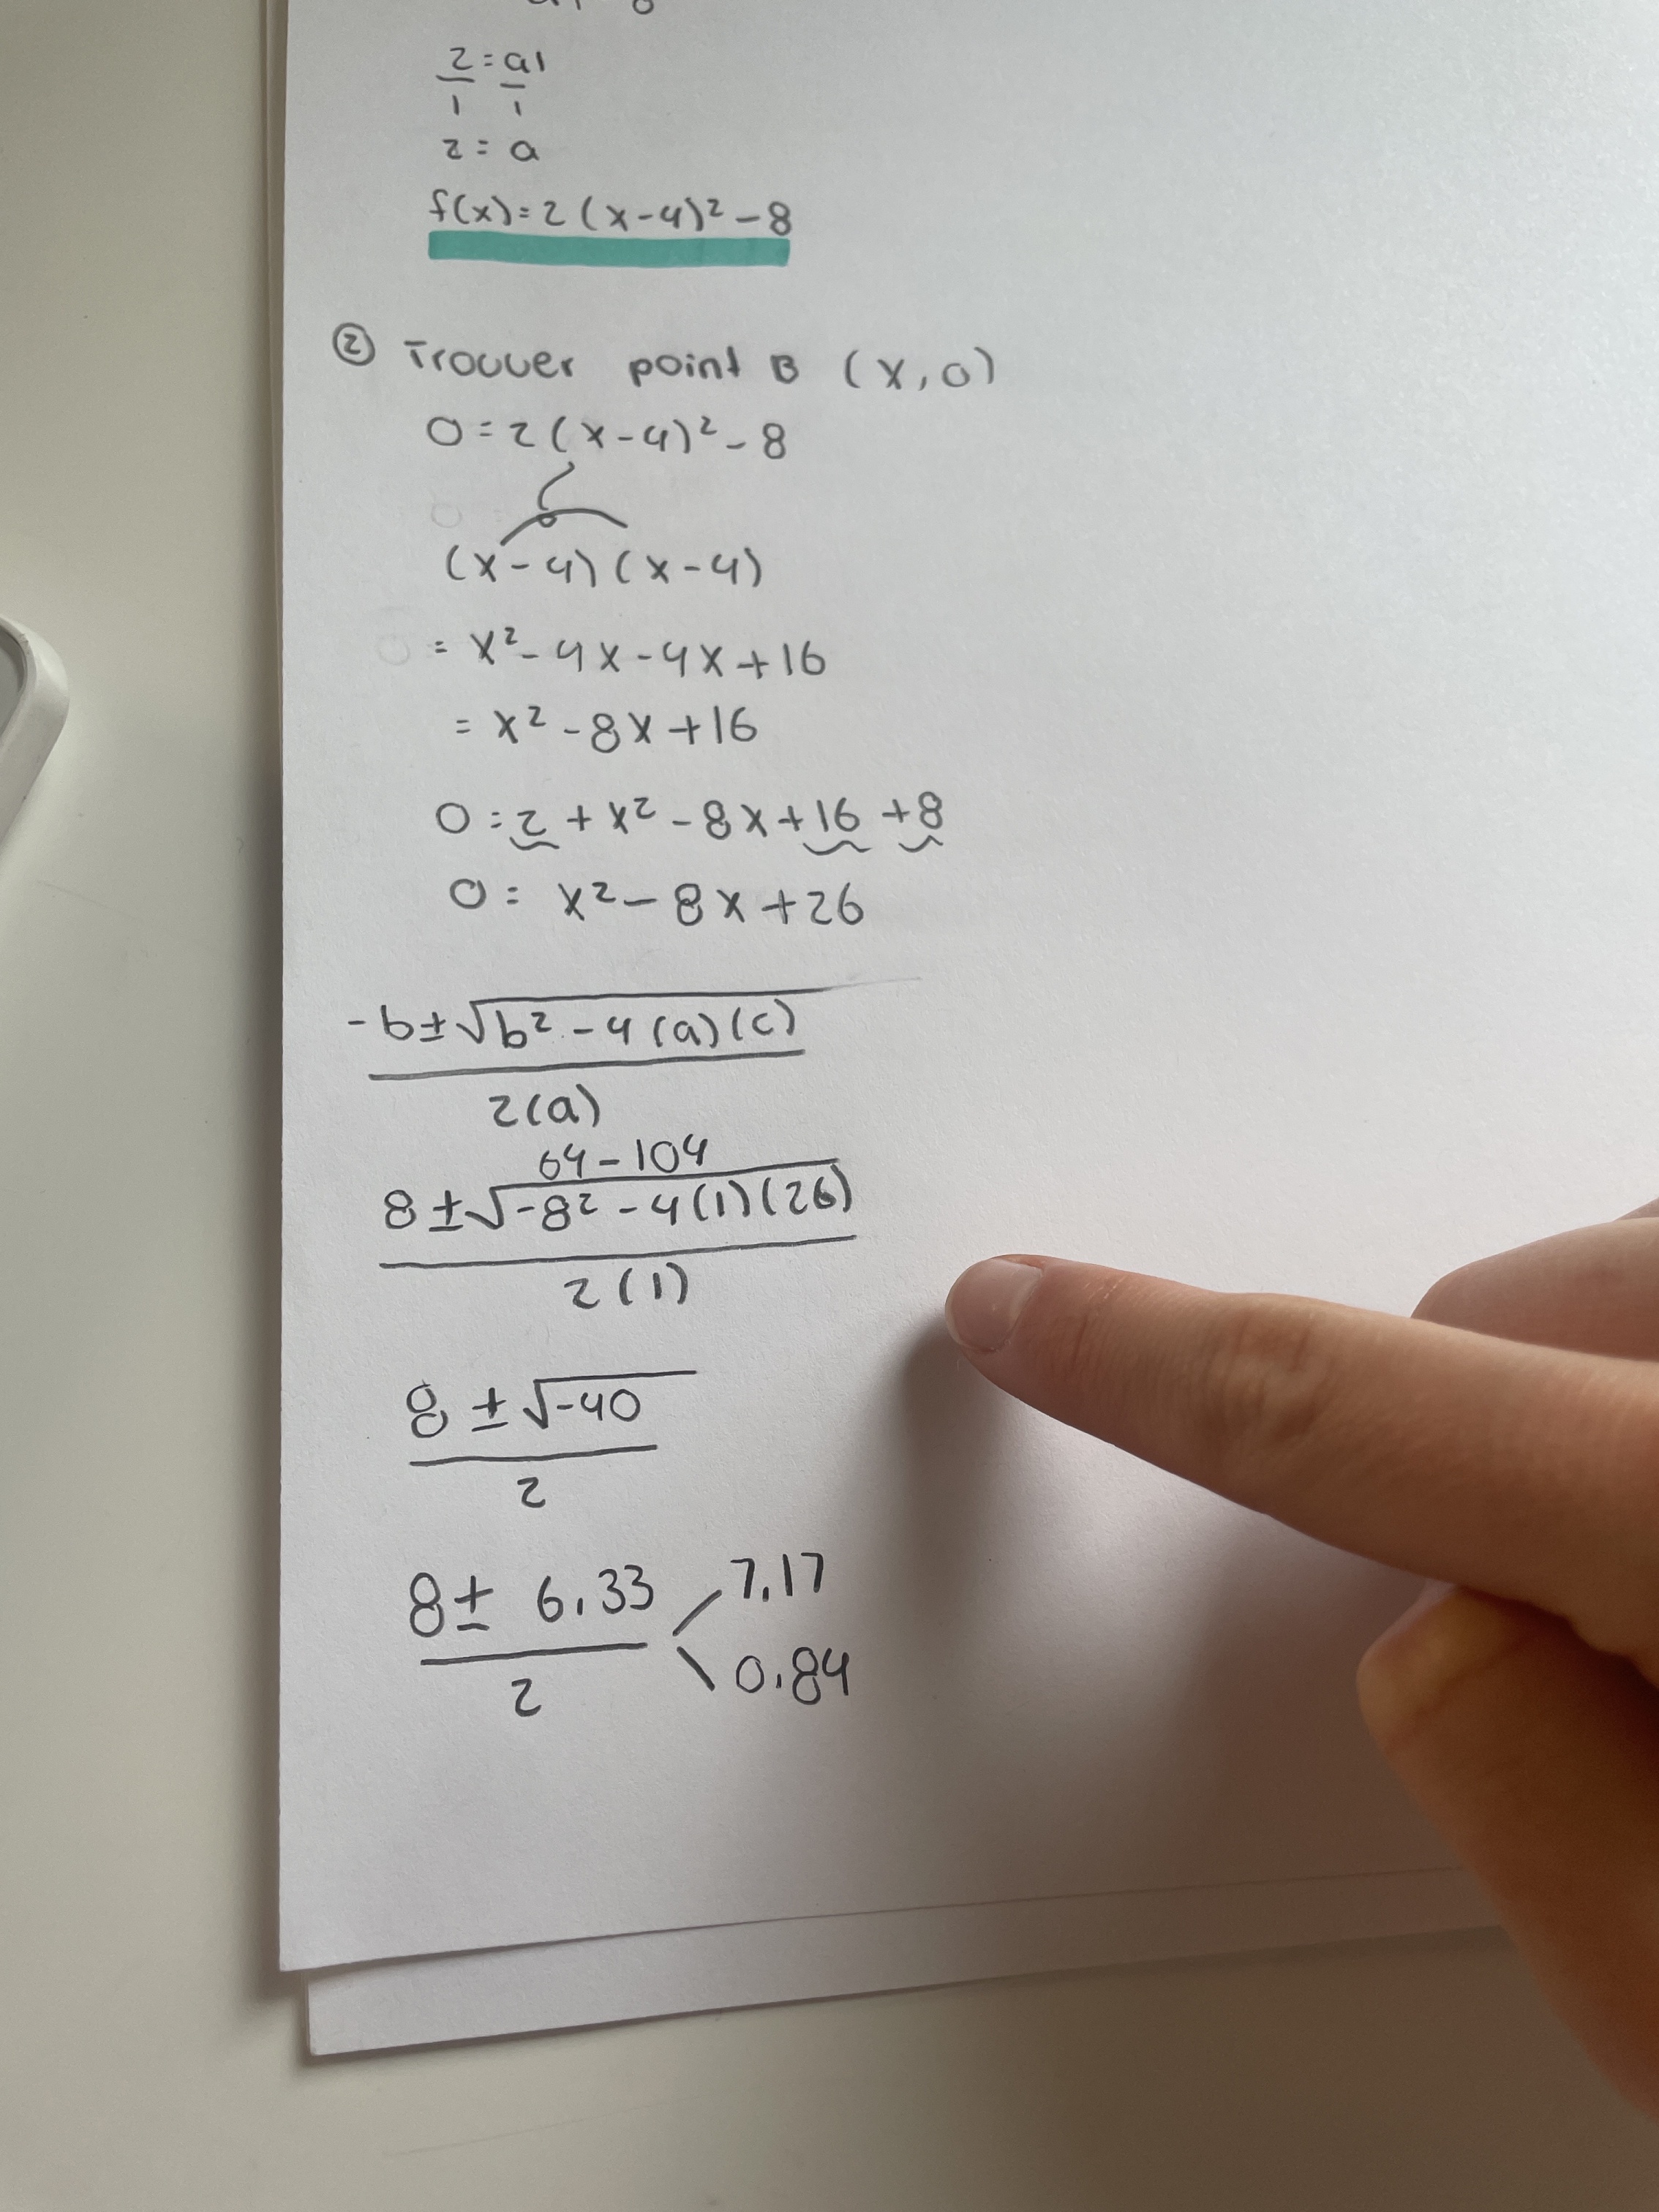 2 = a1
1 1
2 = a
f(x) = 2 (x-4)² - 8
② Trouver point B (x, 0)
0 = 2 (x-4)² - 8
(x-4) (x-4)
= x² - 4x - 4x + 16
= x² - 8x + 16
0 = 2 + x² - 8x + 16 + 8
0 = x² - 8x + 26
-b ± √b² - 4 (a) (c)
2(a)
64 - 104
8 ± √-8² - 4(1)(26)
2(1)
8 ± √-40
2
8 ± 6,33
2
7,17
0,84